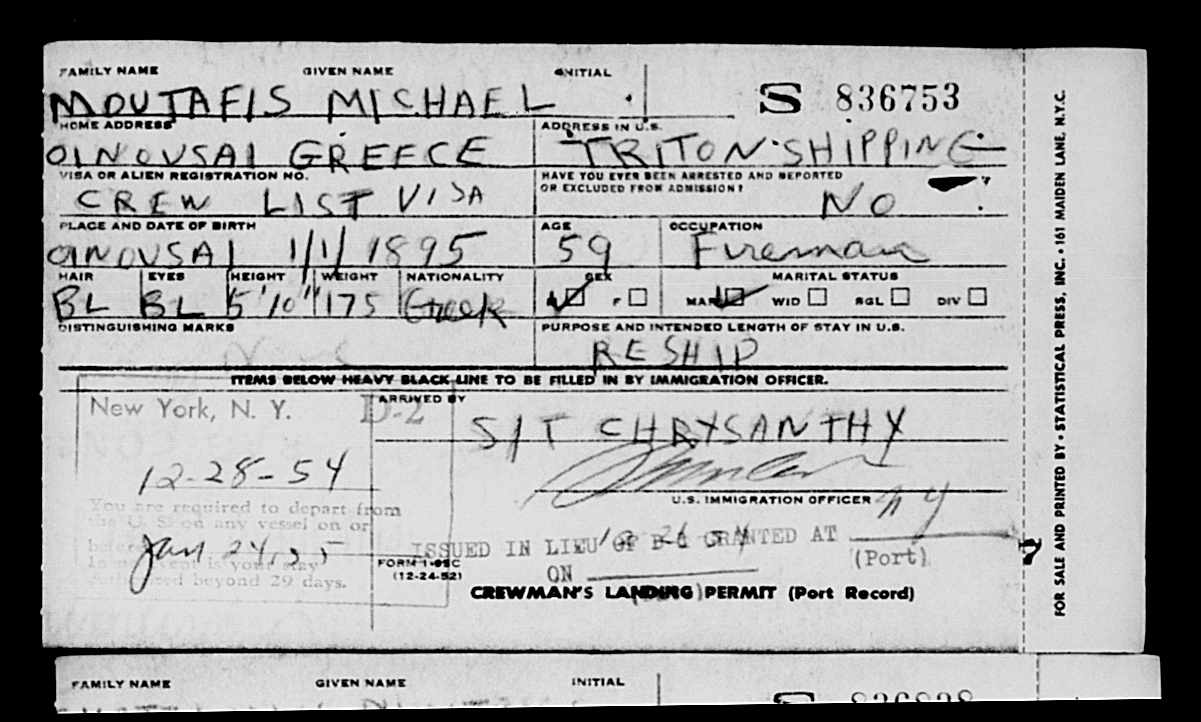 FAMILY NAME GIVEN NAME INITIAL
MOUTAFIS MICHAEL S 836753
HOME ADDRESS ADDRESS IN U.S.
OINOUSAI GREECE TRITON SHIPPING
VISA OR ALIEN REGISTRATION NO. HAVE YOU EVER BEEN ARRESTED AND DEPORTED
OR EXCLUDED FROM ADMISSION?
CREW LIST VISA NO
PLACE AND DATE OF BIRTH AGE OCCUPATION
OINOUSAI 1/1/1895 59 Fireman
HAIR EYES HEIGHT WEIGHT NATIONALITY SEX MARITAL STATUS
BL BL 5'10" 175 Greek F MAR WID SGL DIV
DISTINGUISHING MARKS PURPOSE AND INTENDED LENGTH OF STAY IN U.S.
None RESHIP
ITEMS BELOW HEAVY BLACK LINE TO BE FILLED IN BY IMMIGRATION OFFICER.
New York, N. Y. D-2 ARRIVED BY
S/T CHRYSANTHY
12-28-54
U.S. IMMIGRATION OFFICER NY
You are required to depart from
the U. S. on any vessel on or
before Jan 24, 55
In no event is your stay
Authorized beyond 29 days.
ISSUED IN LIEU OF D-1 GRANTED AT
(Port)
ON
FORM I-95C
(12-24-52)
CREWMAN'S LANDING PERMIT (Port Record)
FOR SALE AND PRINTED BY • STATISTICAL PRESS, INC. • 161 MAIDEN LANE, N.Y.C.
FAMILY NAME GIVEN NAME INITIAL
S 836838